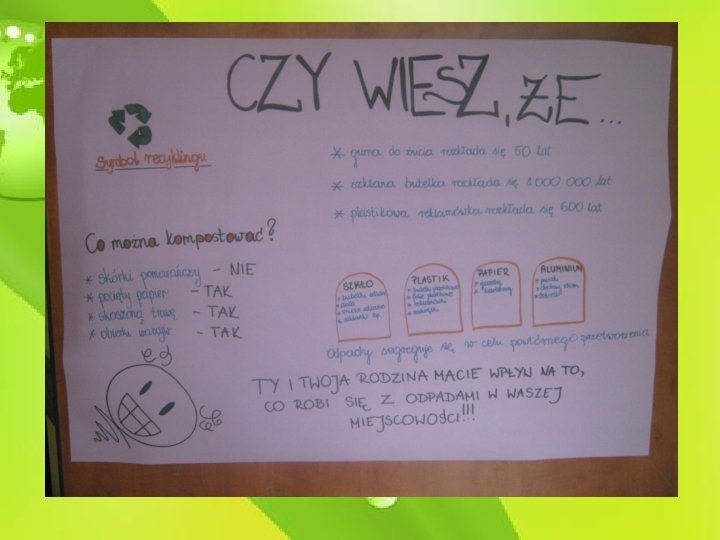 CZY WIESZ, ŻE...
Symbol recyklingu
* guma do żucia rozkłada się 50 lat
* szklana butelka rozkłada się 1 000 000 lat
* plastikowa reklamówka rozkłada się 600 lat
Co można kompostować?
* skórki pomarańczy - NIE
* pocięty papier - TAK
* skoszoną trawę - TAK
* obierki z warzyw - TAK
SZKŁO
PLASTIK
PAPIER
* gazety
ALUMINIUM
* puszki
Odpady segreguje się w celu powtórnego przetworzenia
TY I TWOJA RODZINA MACIE WPŁYW NA TO,
CO ROBI SIĘ Z ODPADAMI W WASZEJ
MIEJSCOWOŚCI!!!